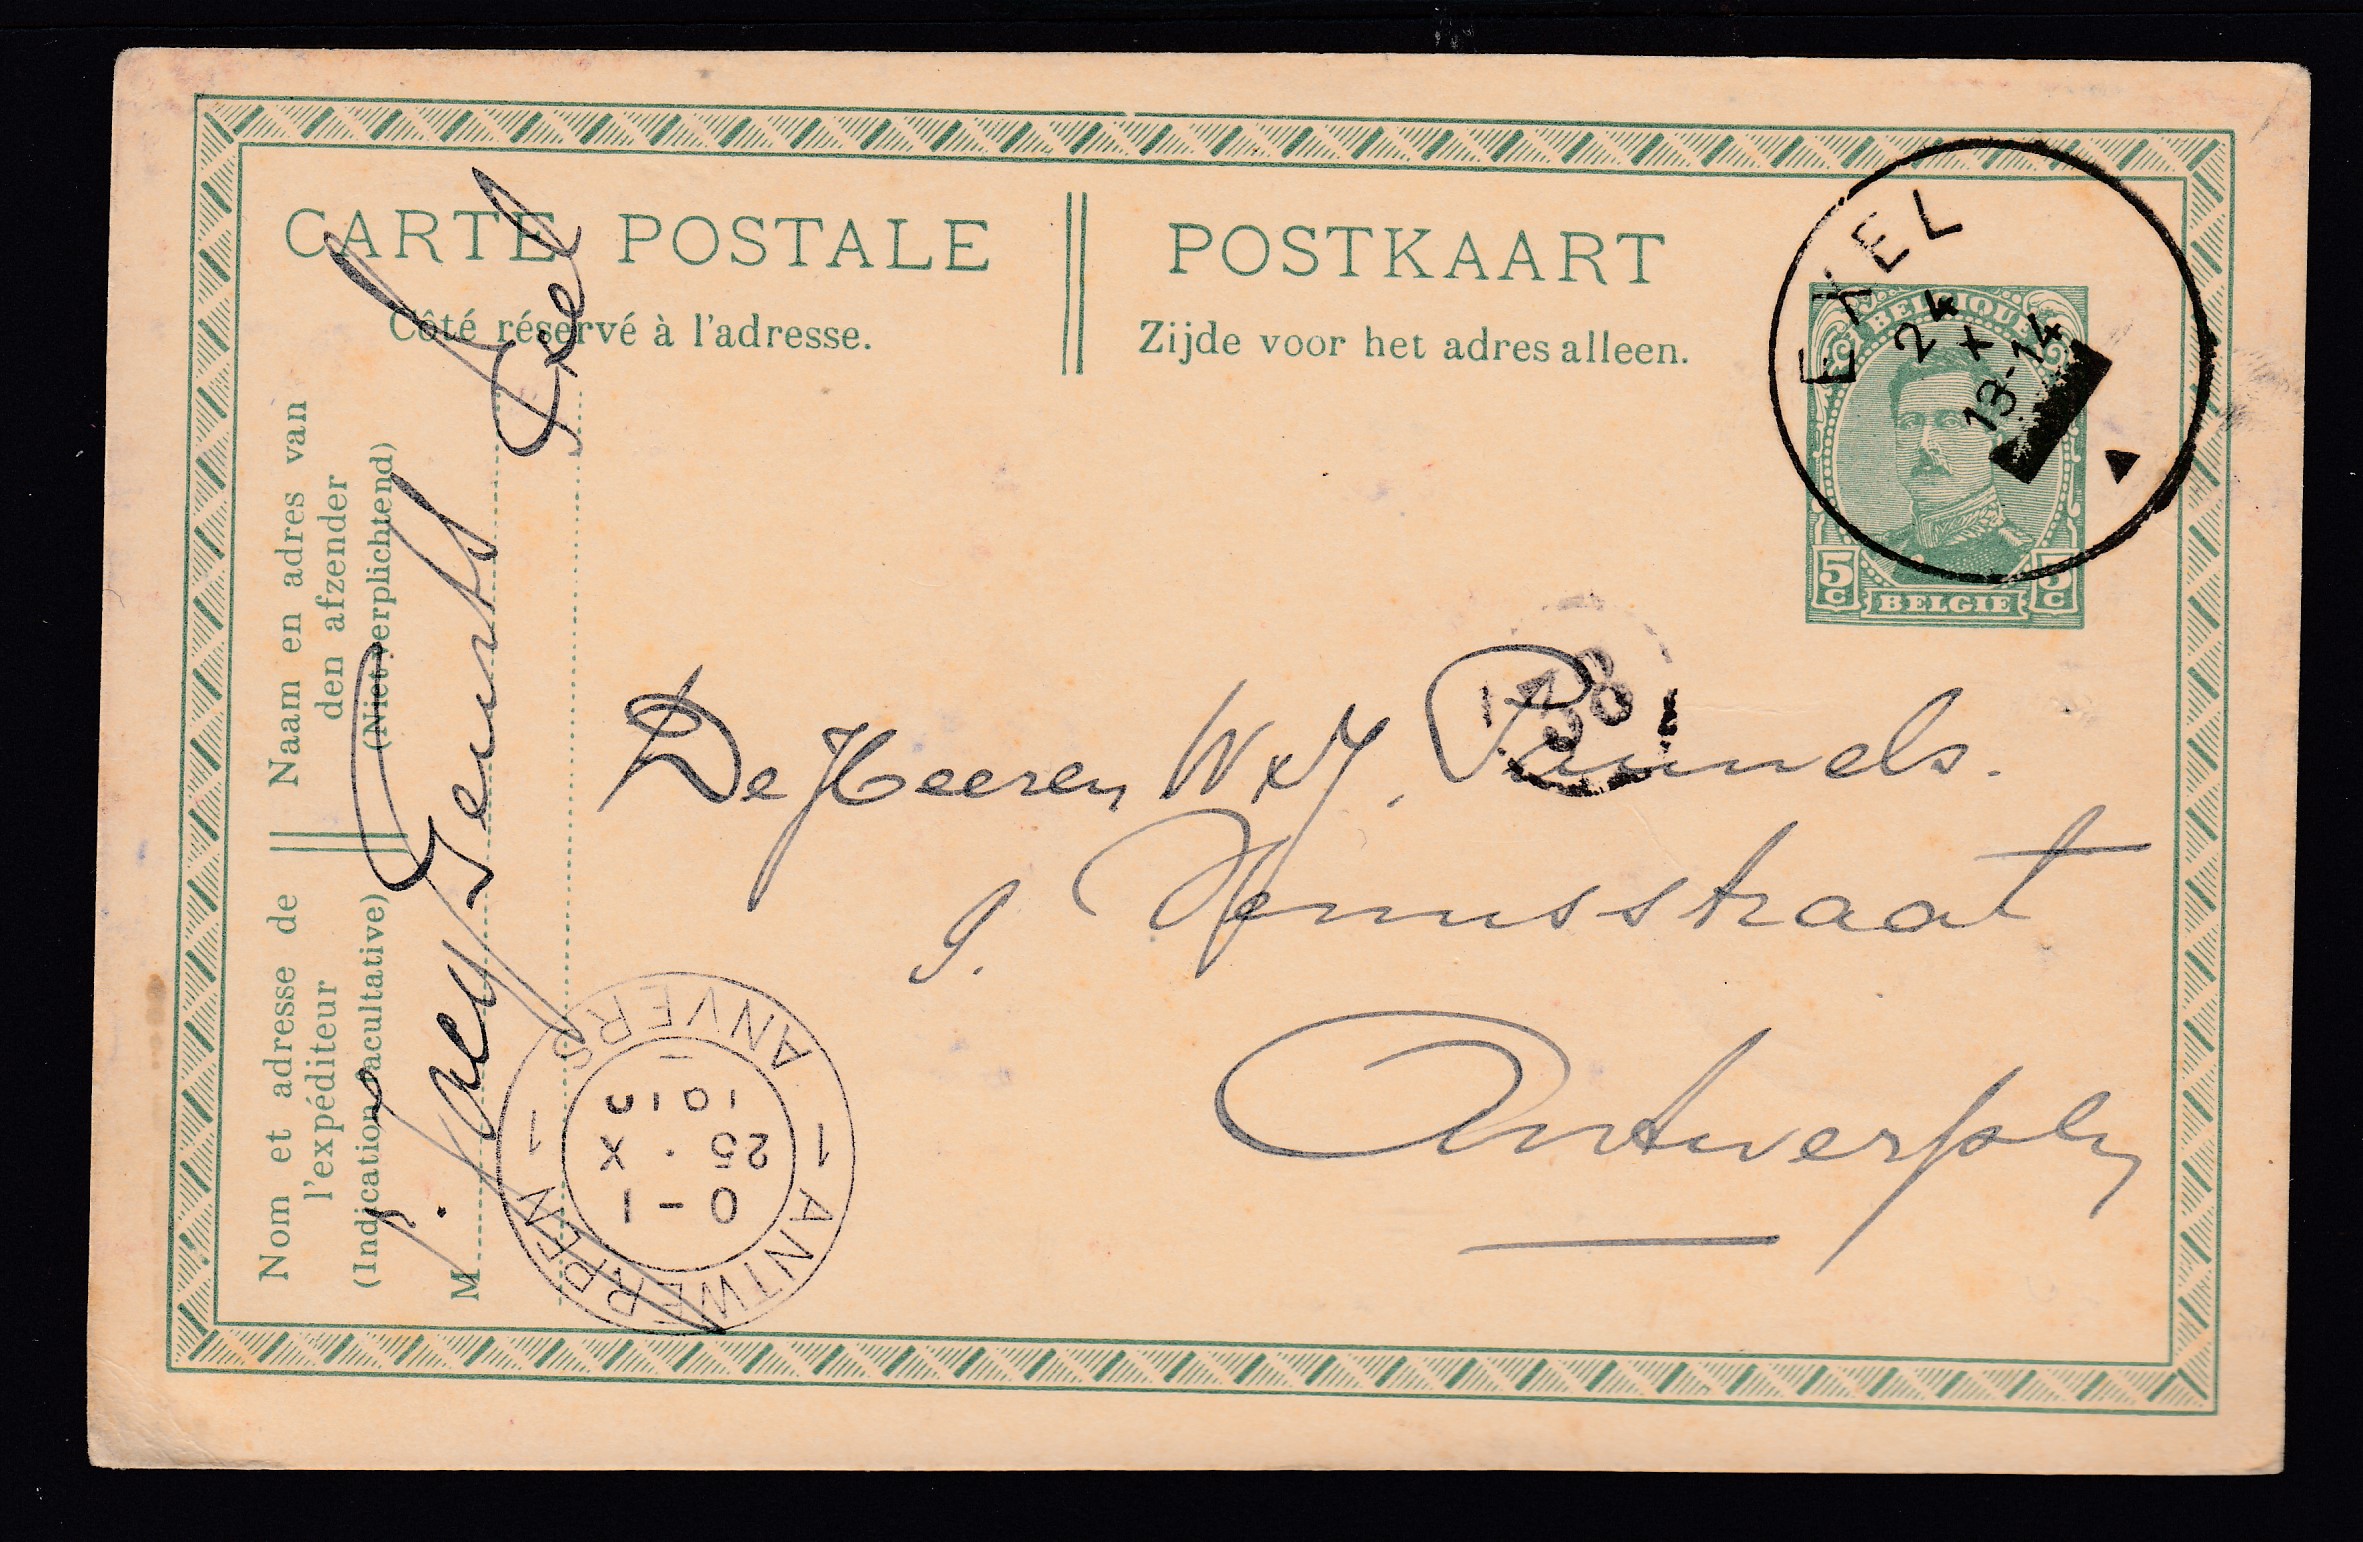 CARTE POSTALE
POSTKAART
Côté réservé à l'adresse.
Zijde voor het adres alleen.
EXEL
24
X
13-14
BELGIQUE
5 c
BELGIE
5 c
Naam en adres van
den afzender
(Niet verplichtend)
Nom et adresse de
l'expéditeur
(Indication facultative)
M
Exel
De Heeren W & J.
9. Venusstraat
Antwerpen
138
1 ANTWERPEN 1
ANVERS
0-1
25 · X